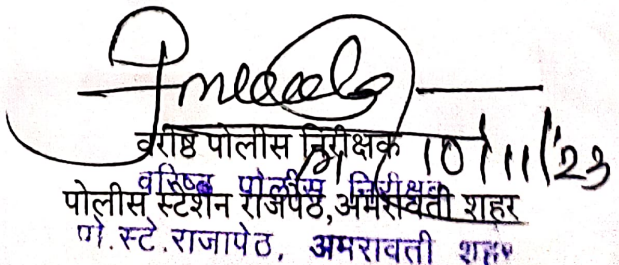 वरीष्ठ पोलीस निरीक्षक
10/11/23
वरिष्ठ पोलीस निरीक्षक
पोलीस स्टेशन राजपेठ,अमरावती शहर
पो.स्टे.राजापेठ, अमरावती शहर